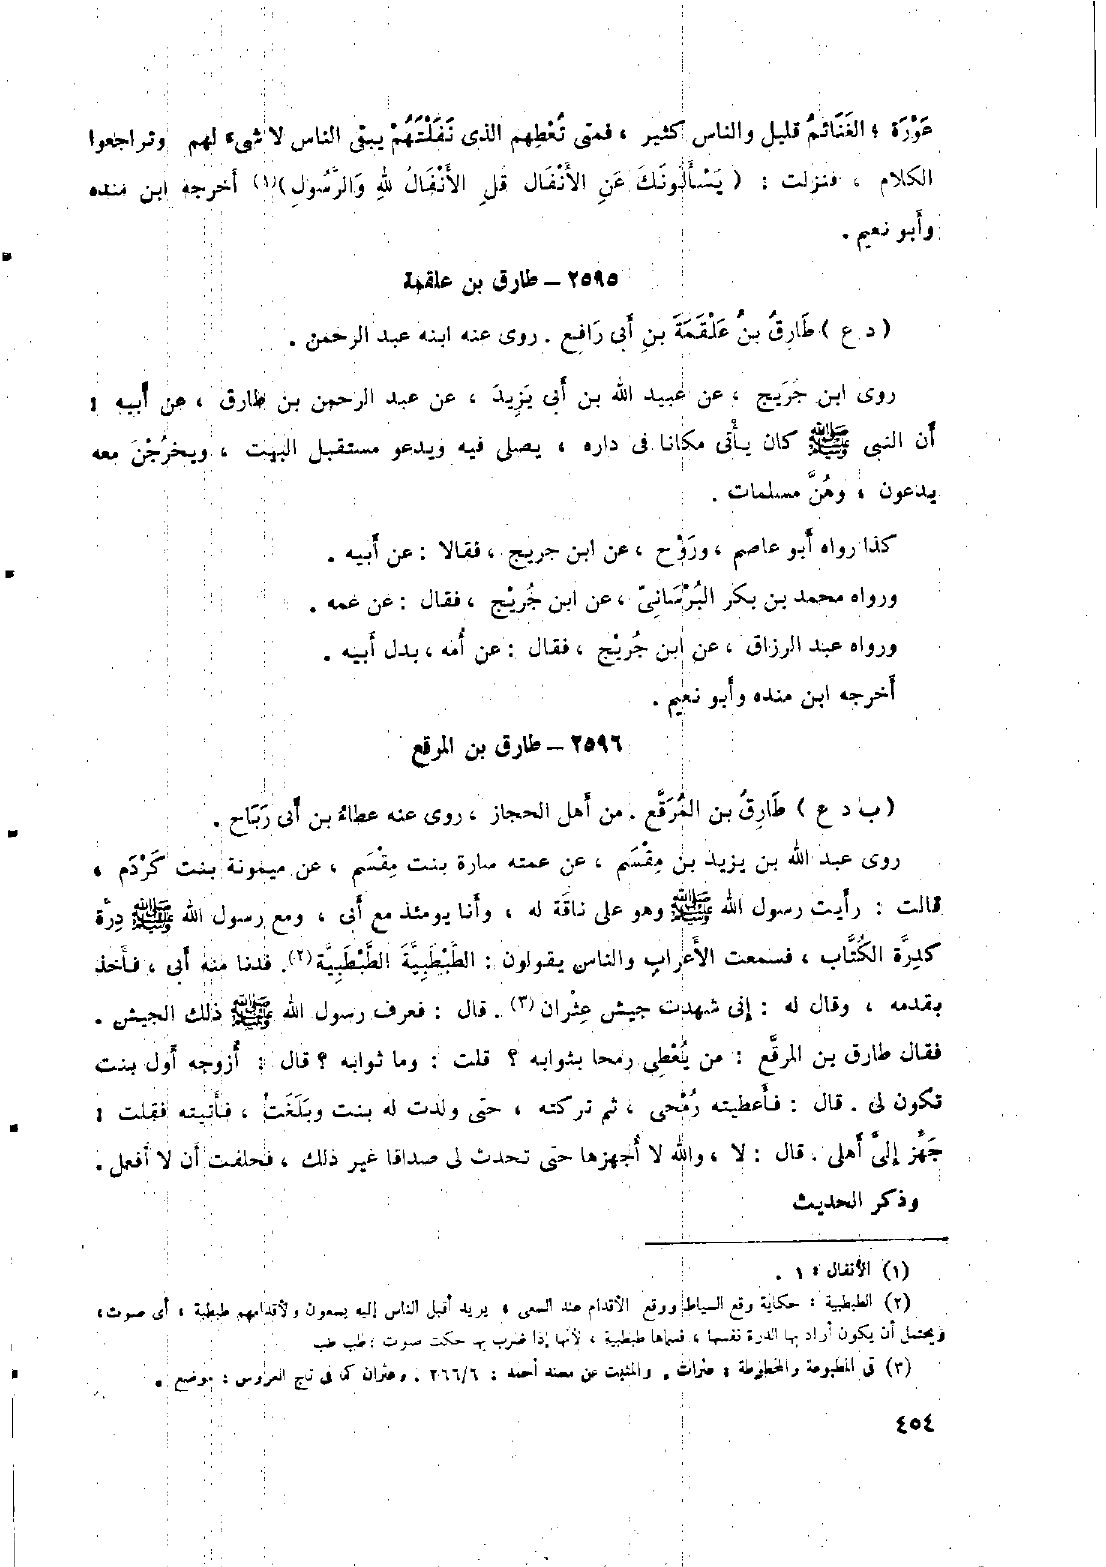 عَوْرَة ؛ الغَنَائمُ قليل والناس كثير ، فمتى تُعْطِهم الذى نَفَلْتَهُمْ يبقى الناس لا شىء لهم وتراجعوا
الكلام ، فنزلت : ( يَسْأَلُونَكَ عَنِ الأَنْفَال قُلِ الأَنْفَالُ لله وَالرَّسُولِ )(١) أخرجه ابن منده
وأبو نعيم .
٢٥٩٥ – طارق بن علقمة
( د ع ) طَارِقُ بنُ عَلْقَمَةَ بنِ أَبى رَافِع . روى عنه ابنه عبد الرحمن .
روى ابن جُرَيج ، عن عبيد الله بن أبى يَزِيدَ ، عن عبد الرحمن بن طارق ، عن أبيه :
أن النبى ﷺ كان يأْتى مكانا فى داره ، يصلى فيه ويدعو مستقبل البيت ، ويخرُجْنَ معه
يدعون ، وهُنَّ مسلمات .
كذا رواه أبو عاصم ، ورَوْح ، عن ابن جريج ، فقالا : عن أبيه .
ورواه محمد بن بكر البُرْسَانِىّ ، عن ابن جُرَيْج ، فقال : عن عمه .
ورواه عبد الرزاق ، عن ابن جُرَيْج ، فقال : عن أمه ، بدل أبيه .
أخرجه ابن منده وأبو نعيم .
٢٥٩٦ – طارق بن المرقع
( ب د ع ) طَارِقُ بن المُرَقَّع . من أهل الحجاز ، روى عنه عطاءُ بن أَبى رَبَاح .
روى عبد الله بن يزيد بن مِقْسَم ، عن عمته سارة بنت مِقْسَم ، عن ميمونة بنت كَرْدَم ،
قالت : رأيت رسول الله ﷺ وهو على ناقَة له ، وأنا يومئذ مع أبى ، ومع رسول الله ﷺ دِرَّة
كدِرَّة الكُتَّاب ، فسمعت الأَعراب والناس يقولون : الطَّبْطَبِيَّة الطَّبْطَبِيَّة(٢). فدنا منه أبى ، فأخذ
بقدمه ، وقال له : إنى شهدت جيش عِثْران(٣) . قال : فعرف رسول الله ﷺ ذلك الجيش .
فقال طارق بن المرقَّع : من يُعْطِى رمحا بثوابه ؟ قلت : وما ثوابه ؟ قال : أُزوجه أول بنت
تكون لى . قال : فأعطيته رُمْحى ، ثم تركته ، حتى ولدت له بنت وبَلَغَتْ ، فأتيته فقلت :
جَهِّز إلىَّ أهلى . قال : لا ، والله لا أُجهزها حتى تحدث لى صداقا غير ذلك ، فحلفت أن لا أفعل .
وذكر الحديث
(١) الأنفال : ١ .
(٢) الطبطبية : حكاية وقع السياط ووقع الأقدام عند السعى ، يريد أقبل الناس إليه يسعون ولأقدامهم طبطبة ، أى صوت،
ويحتمل أن يكون أراد بها الدرة نفسها ، فسماها طبطبية ، لأنها إذا ضرب بها حكت صوت : طب طب
(٣) فى المطبوعة والمخطوطة : عثرات . والمثبت عن مسند أحمد : ٢٦٦/٦ . وعثران كما فى تاج العروس : موضع .
٤٥٤